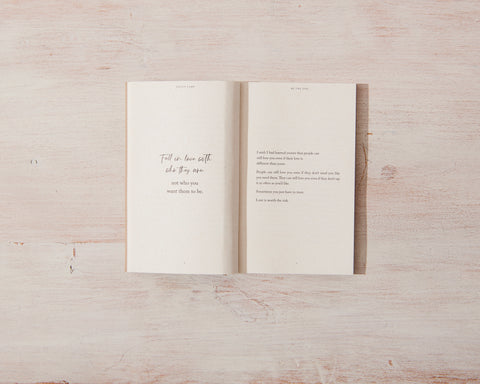 Fall in love with
who they are
not who you
want them to be.
I wish I had learned sooner that people can
still love you even if their love is
different than yours.
People can still love you even if they don't need you like
you need them. They can still love you even if they don't say
it as often as you'd like.
Sometimes you just have to trust.
Love is worth the risk.